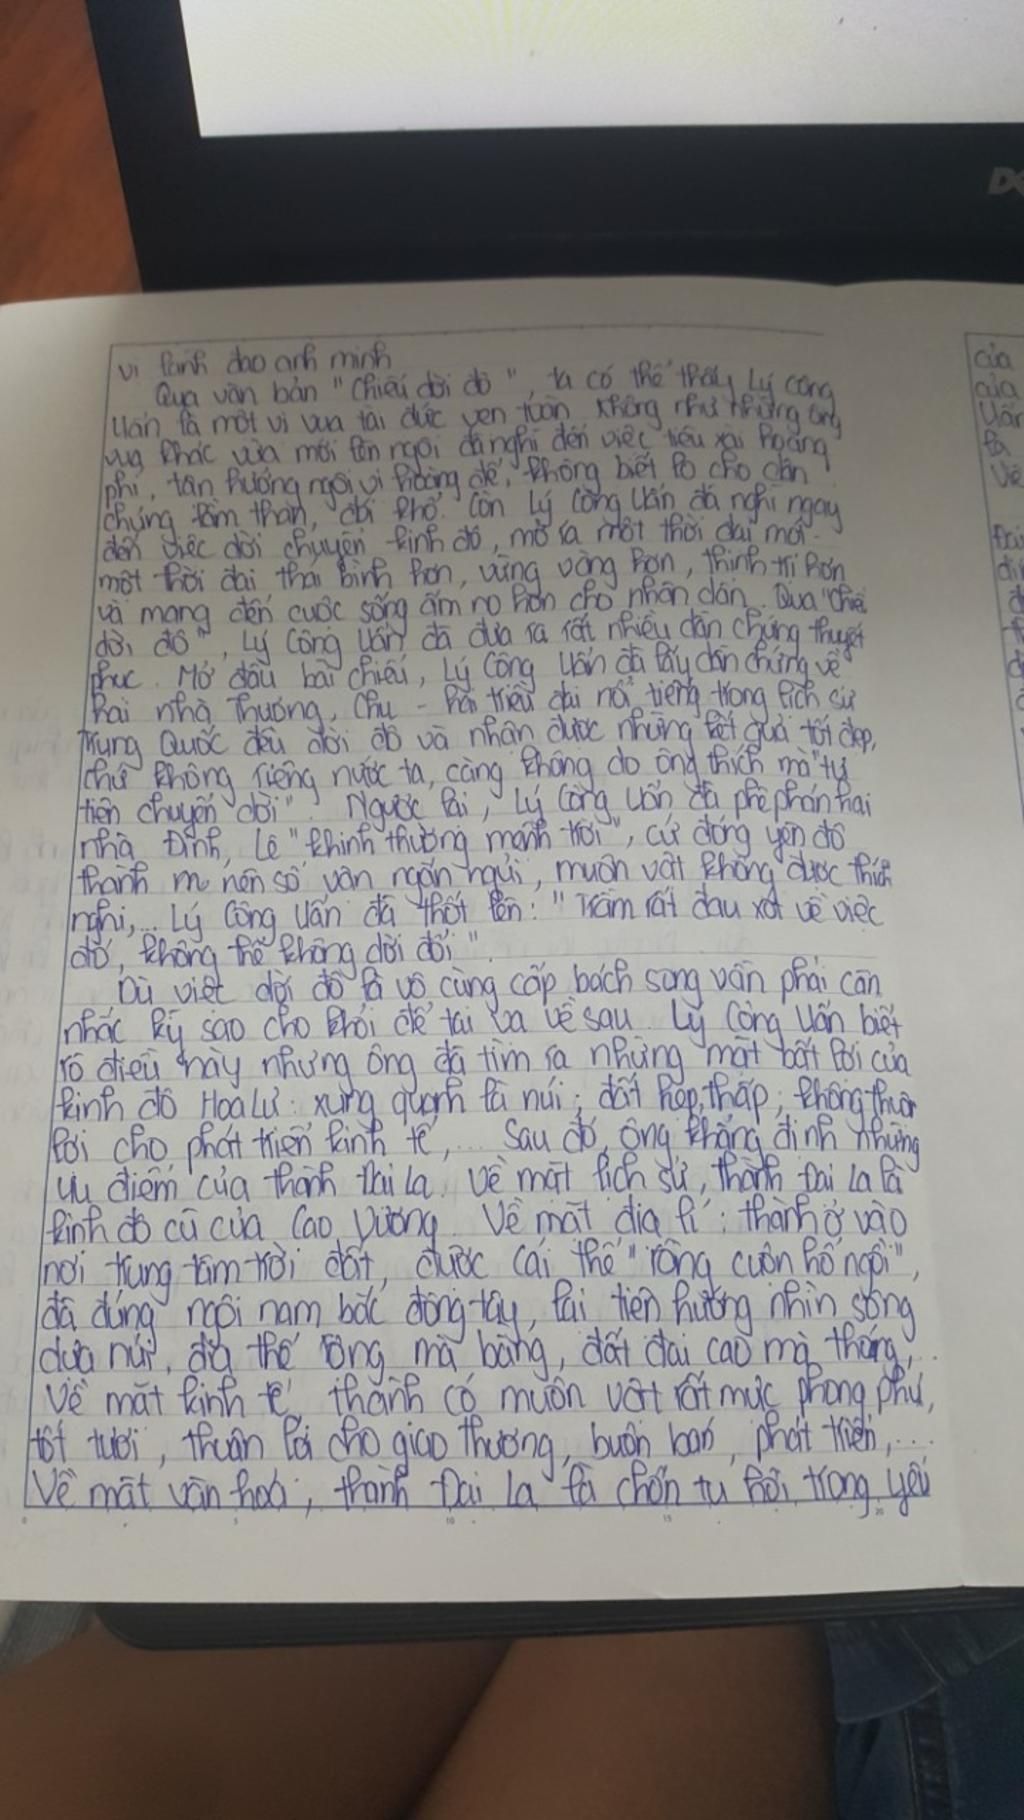 DE
vị lãnh đạo anh minh
Qua văn bản "Chiếu dời đô", ta có thể thấy Lý Công
Uẩn là một vị vua tài đức vẹn toàn không như những ông
vua khác vừa mới lên ngôi đã nghĩ đến việc tiêu xài hoang
phí, tận hưởng ngôi vị hoàng đế, không biết lo cho dân
chúng lầm than, đói khổ. Còn Lý Công Uẩn đã nghĩ ngay
đến việc dời chuyển kinh đô, mở ra một thời đại mới -
một thời đại thái bình hơn, vững vàng hơn, thịnh trị hơn
và mang đến cuộc sống ấm no hơn cho nhân dân. Qua "Chiếu
dời đô", Lý Công Uẩn đã đưa ra rất nhiều dẫn chứng thuyết
phục. Mở đầu bài chiếu, Lý Công Uẩn đã lấy dẫn chứng về
hai nhà Thương, Chu - hai triều đại nổi tiếng trong lịch sử
Trung Quốc đều dời đô và nhận được những kết quả tốt đẹp,
chứ không riêng nước ta, càng không do ông thích mà "tự
tiện chuyển dời". Ngược lại, Lý Công Uẩn đã phê phán hai
nhà Đinh, Lê "khinh thường mệnh trời", cứ đóng yên đô
thành nên số vận ngắn ngủi, muôn vật không được thích
nghi,... Lý Công Uẩn đã thốt lên: "Trẫm rất đau xót về việc
đó, không thể không dời đổi".
Dù việc dời đô là vô cùng cấp bách song vẫn phải cân
nhắc kỹ sao cho khỏi để tai vạ về sau. Lý Công Uẩn biết
rõ điều này nhưng ông đã tìm ra những mặt bất lợi của
kinh đô Hoa Lư: xung quanh là núi; đất hẹp, thấp; không thuận
lợi cho phát triển kinh tế,... Sau đó, ông khẳng định những
ưu điểm của thành Đại La. Về mặt lịch sử, thành Đại La là
kinh đô cũ của Cao Vương. Về mặt địa lí: thành ở vào
nơi trung tâm trời đất, được cái thế "rồng cuộn hổ ngồi",
đã đúng ngôi nam bắc đông tây, lại tiện hướng nhìn sông
dựa núi, địa thế rộng mà bằng, đất đai cao mà thoáng,...
Về mặt kinh tế, thành có muôn vật rất mực phong phú,
tốt tươi, thuận lợi cho giao thương, buôn bán, phát triển,...
Về mặt văn hoá, thành Đại La là chốn tụ hội trọng yếu
của
của
Uẩn
là
Về
0 5 10 15 20